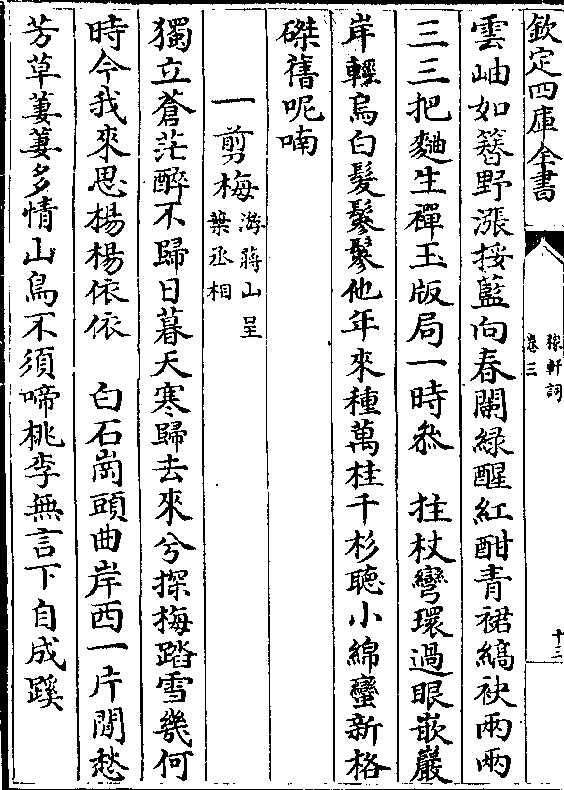 欽定四庫全書
稼軒詞
卷三
十三
雲岫如簪野漲挼藍向春闌綠醒紅酣青裙縞袂兩兩
三三把麯生禪玉版局一時參　拄杖彎環過眼嵌巖
岸輕烏白髮鬖鬖他年來種萬桂千杉聽小綿蠻新格
磔舊呢喃
一剪梅游蔣山呈
葉丞相
獨立蒼茫醉不歸日暮天寒歸去來兮探梅踏雪幾何
時今我來思楊楊依依　白石岡頭曲岸西一片閒愁
芳草萋萋多情山鳥不須啼桃李無言下自成蹊